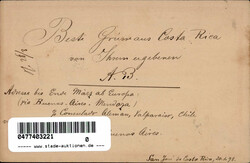 Beste Grüsse aus Costa Rica
von Ihrem ergebenen
A. B.
Adress bis Ende März ab Europa:
(via Buenos-Aires, Mendoza)
z. Consulado Aleman, Valparaiso, Chile.
Buenos Aires.
San José de Costa Rica,
0477403221
0
www.stade-auktionen.de